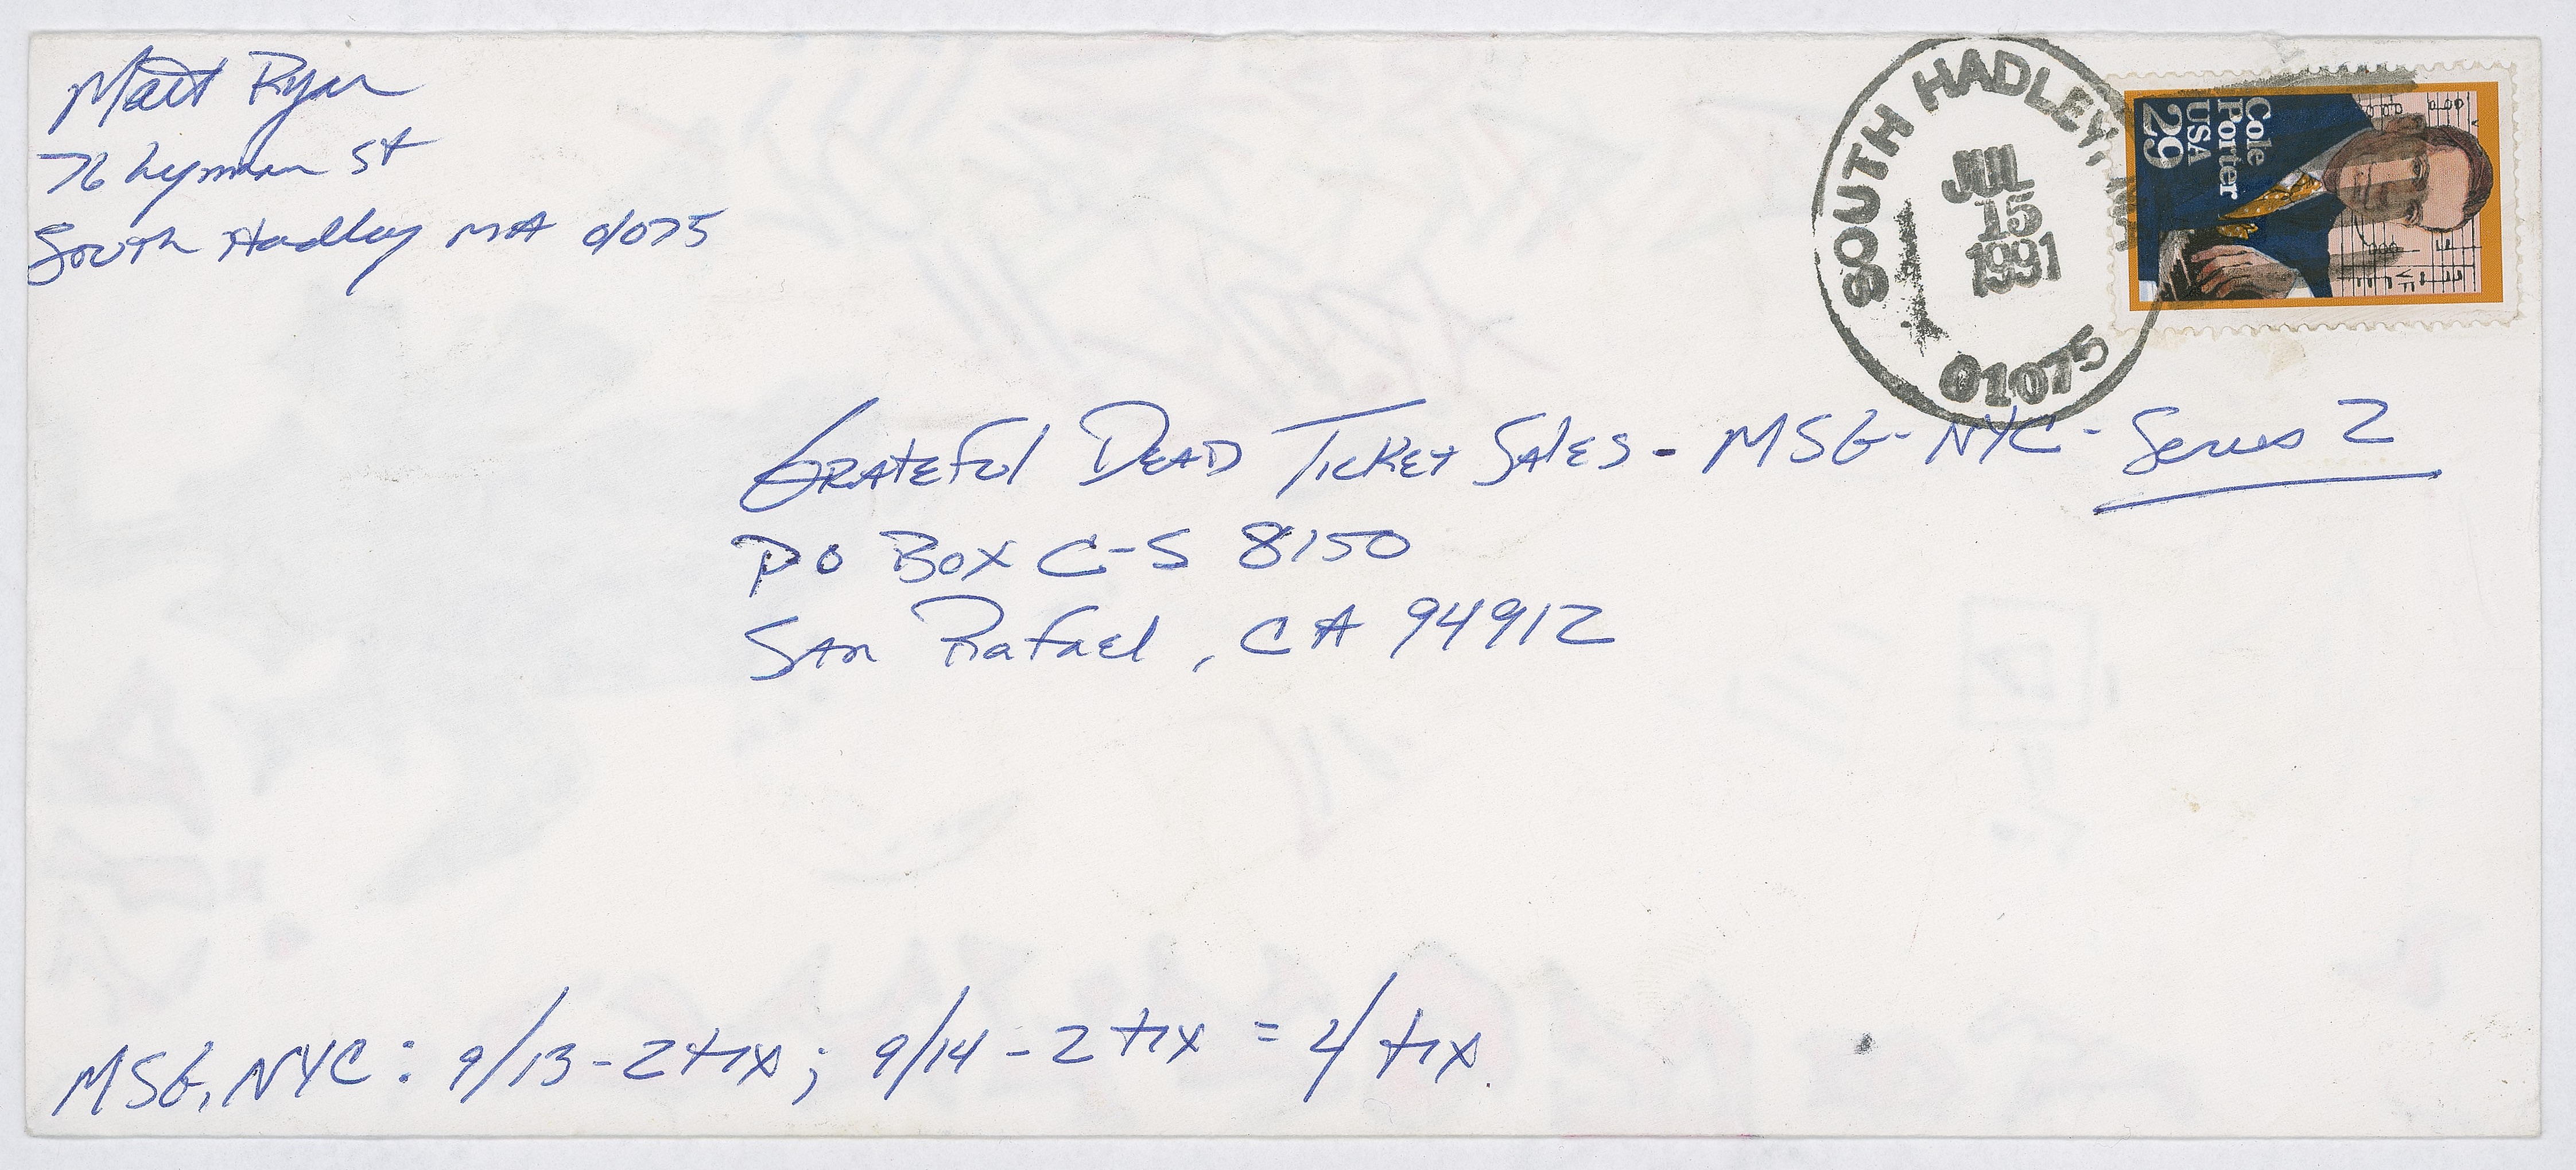 Matt Ryan
76 Lyman St
South Hadley MA 01075
SOUTH HADLEY, MA
JUL
15
1991
01075
Cole
Porter
USA
29
GRATEFUL DEAD TICKET SALES - MSG - NYC - Series 2
PO BOX C-S 8150
SAN RaFael, CA 94912
MSG, NYC: 9/13 - 2 tix; 9/14 - 2 tix = 4 tix